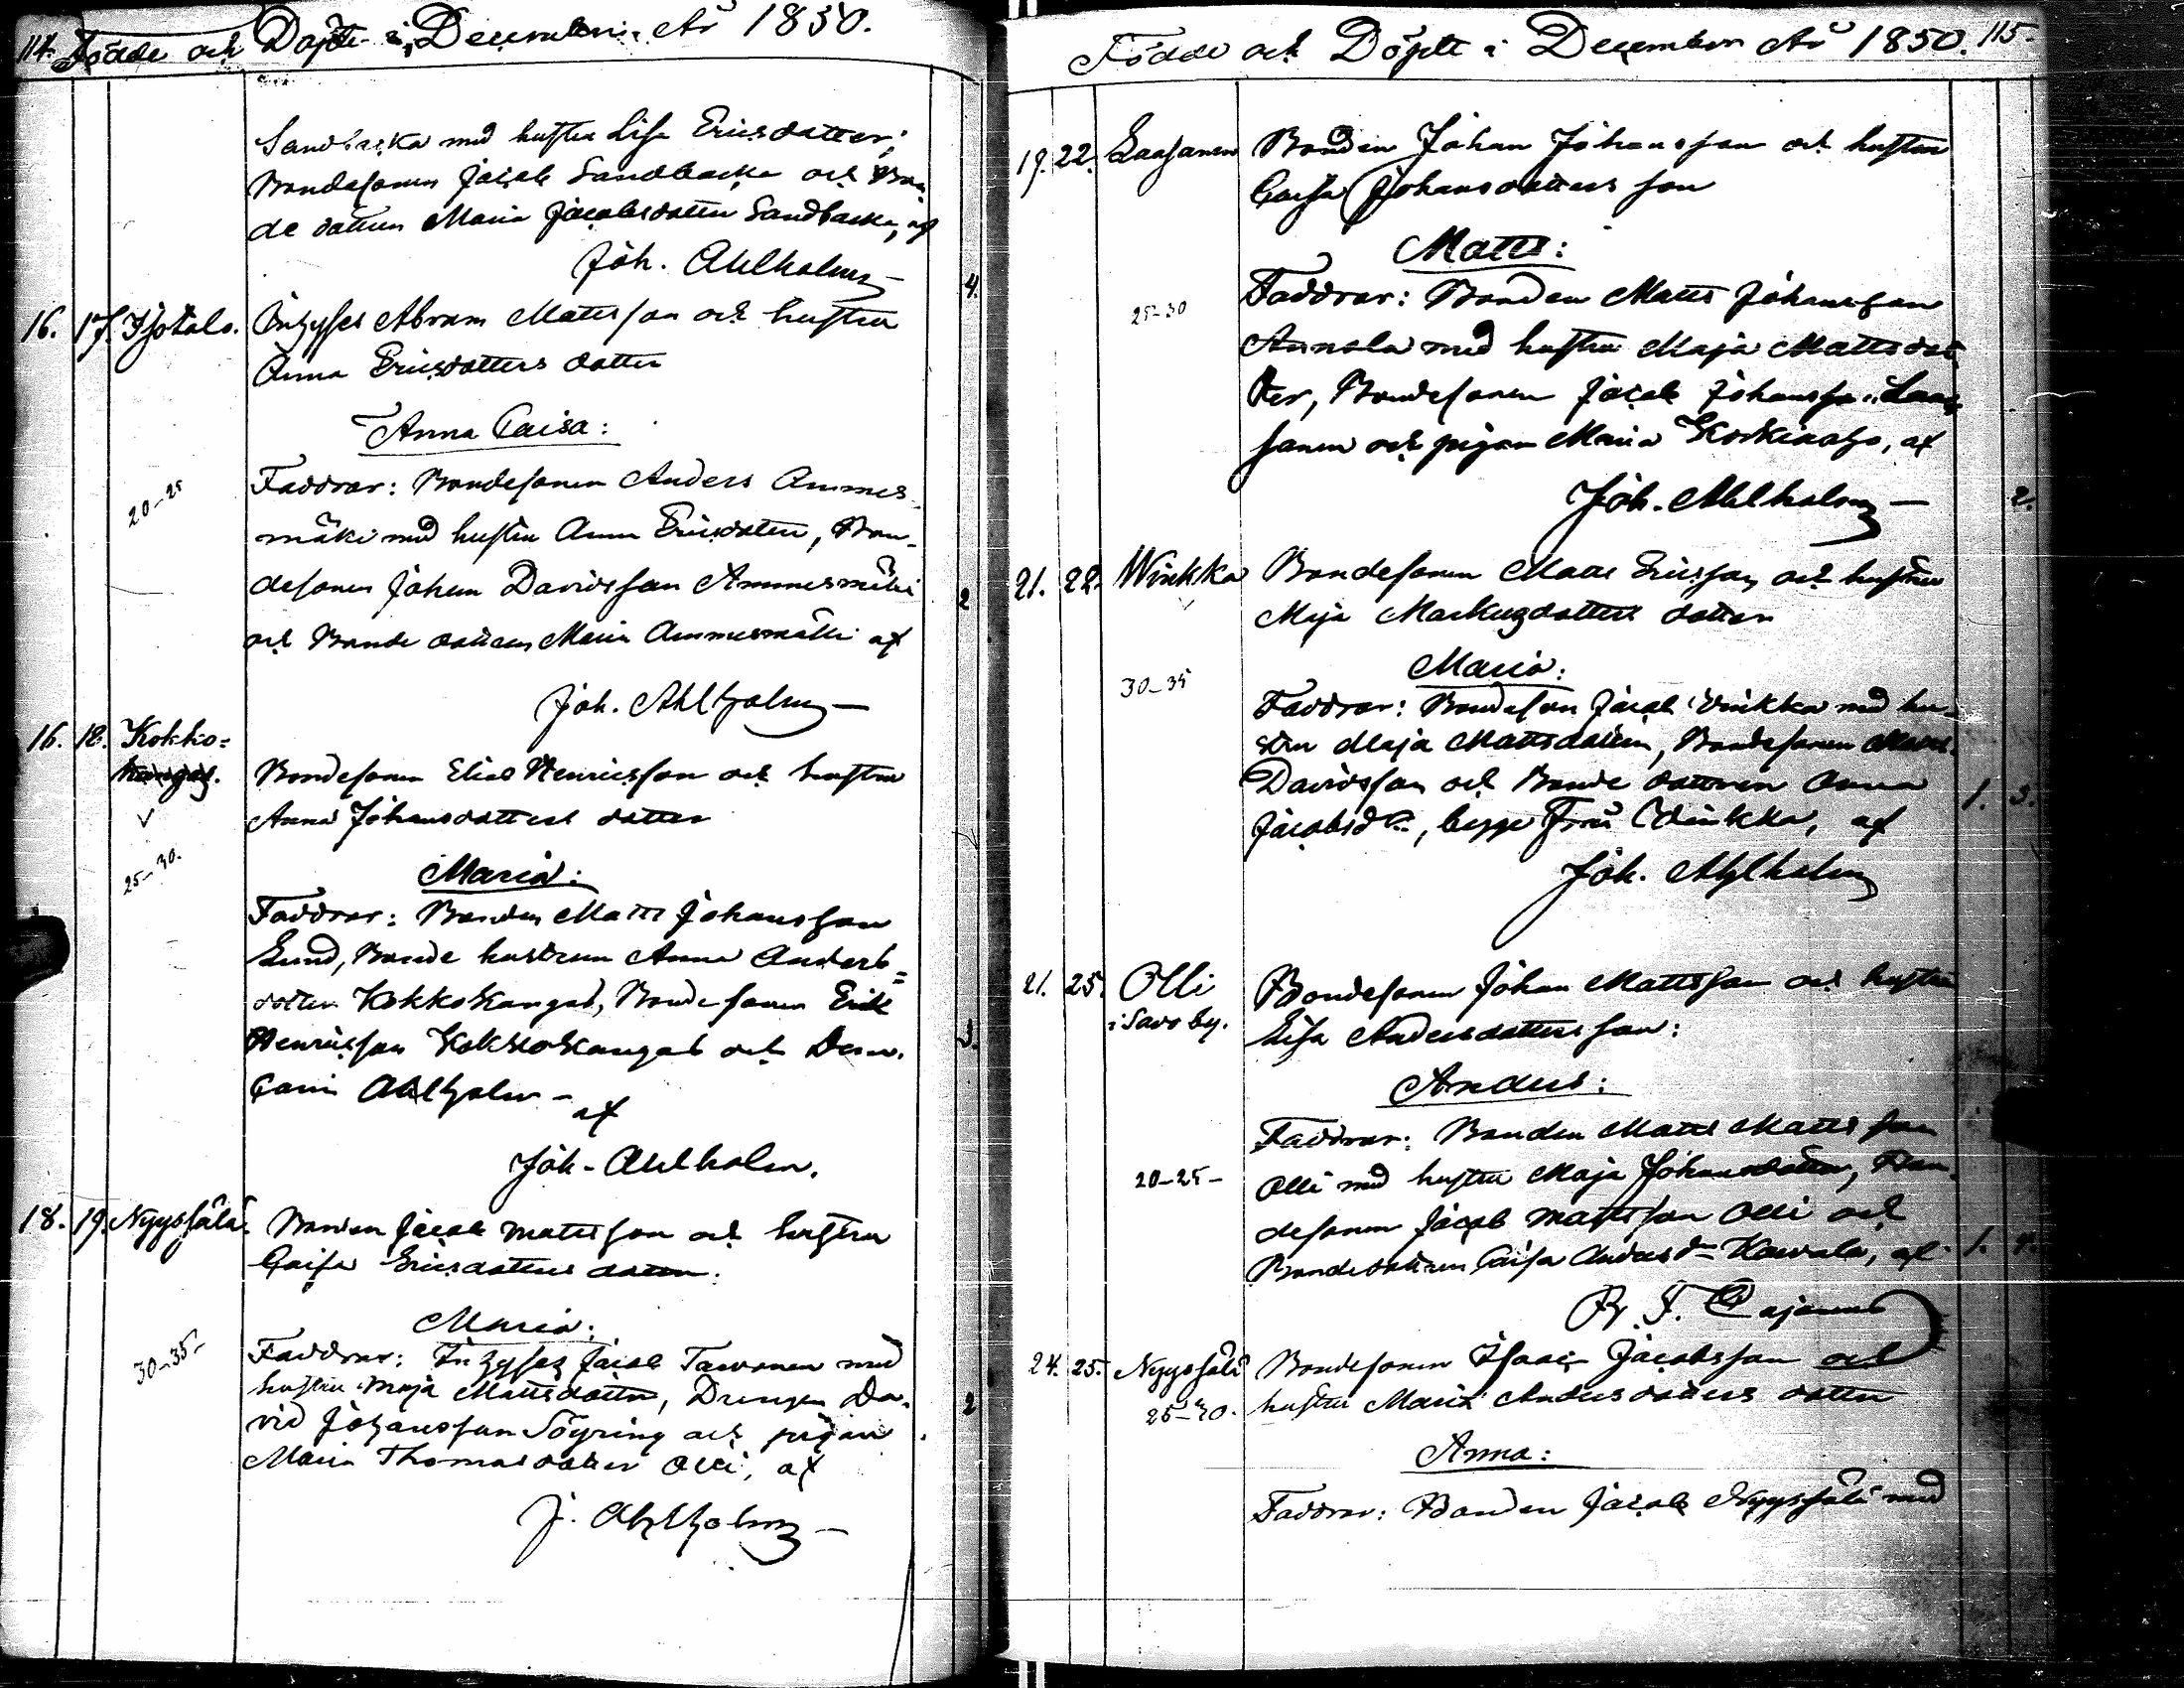 114. Födde och Döpte i December År 1850.
Sandbacka med hustru Lisa Ericsdotter;
Bondesonen Jacob Sandbacka och Bon
de dottren Maria Jacobsdotter Sandbacka, af
Joh. Ahlholm 4.
16. 17. Isotalo. Inhyses Abram Mattsson och hustru
Anna Ericsdotters dotter
Anna Caisa:
Faddrar: Bondesonen Anders Ammes-
20-25
mäki med hustru Anna Ericsdotter, Bon-
desonen Johan Davidsson Ammesmäki 2
och Bonde dottren Maria Ammesmäki af
Joh. Ahlholm
16. 18. Kokko=
kangas. Bondesonen Elias Henricsson och hustru
Anna Johansdotters dotter
25-30.
Maria:
Faddrar: Bonden Matts Johansson
Lund, Bonde hustrun Anna Anders=
dotter Kokkokangas, Bondesonen Erik
Henricsson Kokkokangas och Dem. 3.
Carin Ahlholm -
af
Joh. Ahlholm.
18. 19. Nyyssälä. Bonden Jacob Mattsson och hustru
Caisa Ericsdotters dotter.
Maria:
30-35-
Faddrar: Inhyses Jacob Tawonen med
hustru Maja Mattsdotter, Drengen Da- 2
vid Johansson Söyring och pigan
Maria Thomasdotter Olli, af
J. Ahlholm
Födde och Döpte i December År 1850. 115.
19. 22. Laasanen Bonden Johan Johansson och hustru
Caisa Johansdotters son
Matts:
25-30
Faddrar: Bonden Matts Johansson
Annala med hustru Maja Mattsdot
ter, Bondesonen Jacob Johansson Laa
sanen och pigan Maria Korkiaaho, af
Joh. Ahlholm 2.
21. 22. Winkka Bondesonen Matts Ericsson och hustru
Maja Markusdotters dotter
Maria:
30-35
Faddrar: Bondeson Jacob Winkka med hu-
stru Maja Mattsdotter, Bondesonen Matts
Davidsson och Bonde dottren Anna 1. 3.
Jacobsdr, begge från Winkka, af
Joh. Ahlholm
21. 25. Olli Bondesonen Johan Mattsson och hustru
i Savo by. Lisa Andersdotters son:
Anders:
Faddrar: Bonden Matts Mattsson
20-25-
Olli med hustru Maja Johansdotter, Bon-
desonen Jacob Mattsson Olli och
Bondedottren Caisa Andersdr Kawala, af 1. 4.
F. Cajanus
24. 25. Nyyssälä Bondesonen Isaac Jacobsson och
25-30. hustru Maria Andersdotters dotter
Anna:
Faddrar: Bonden Jacob Nyyssälä med